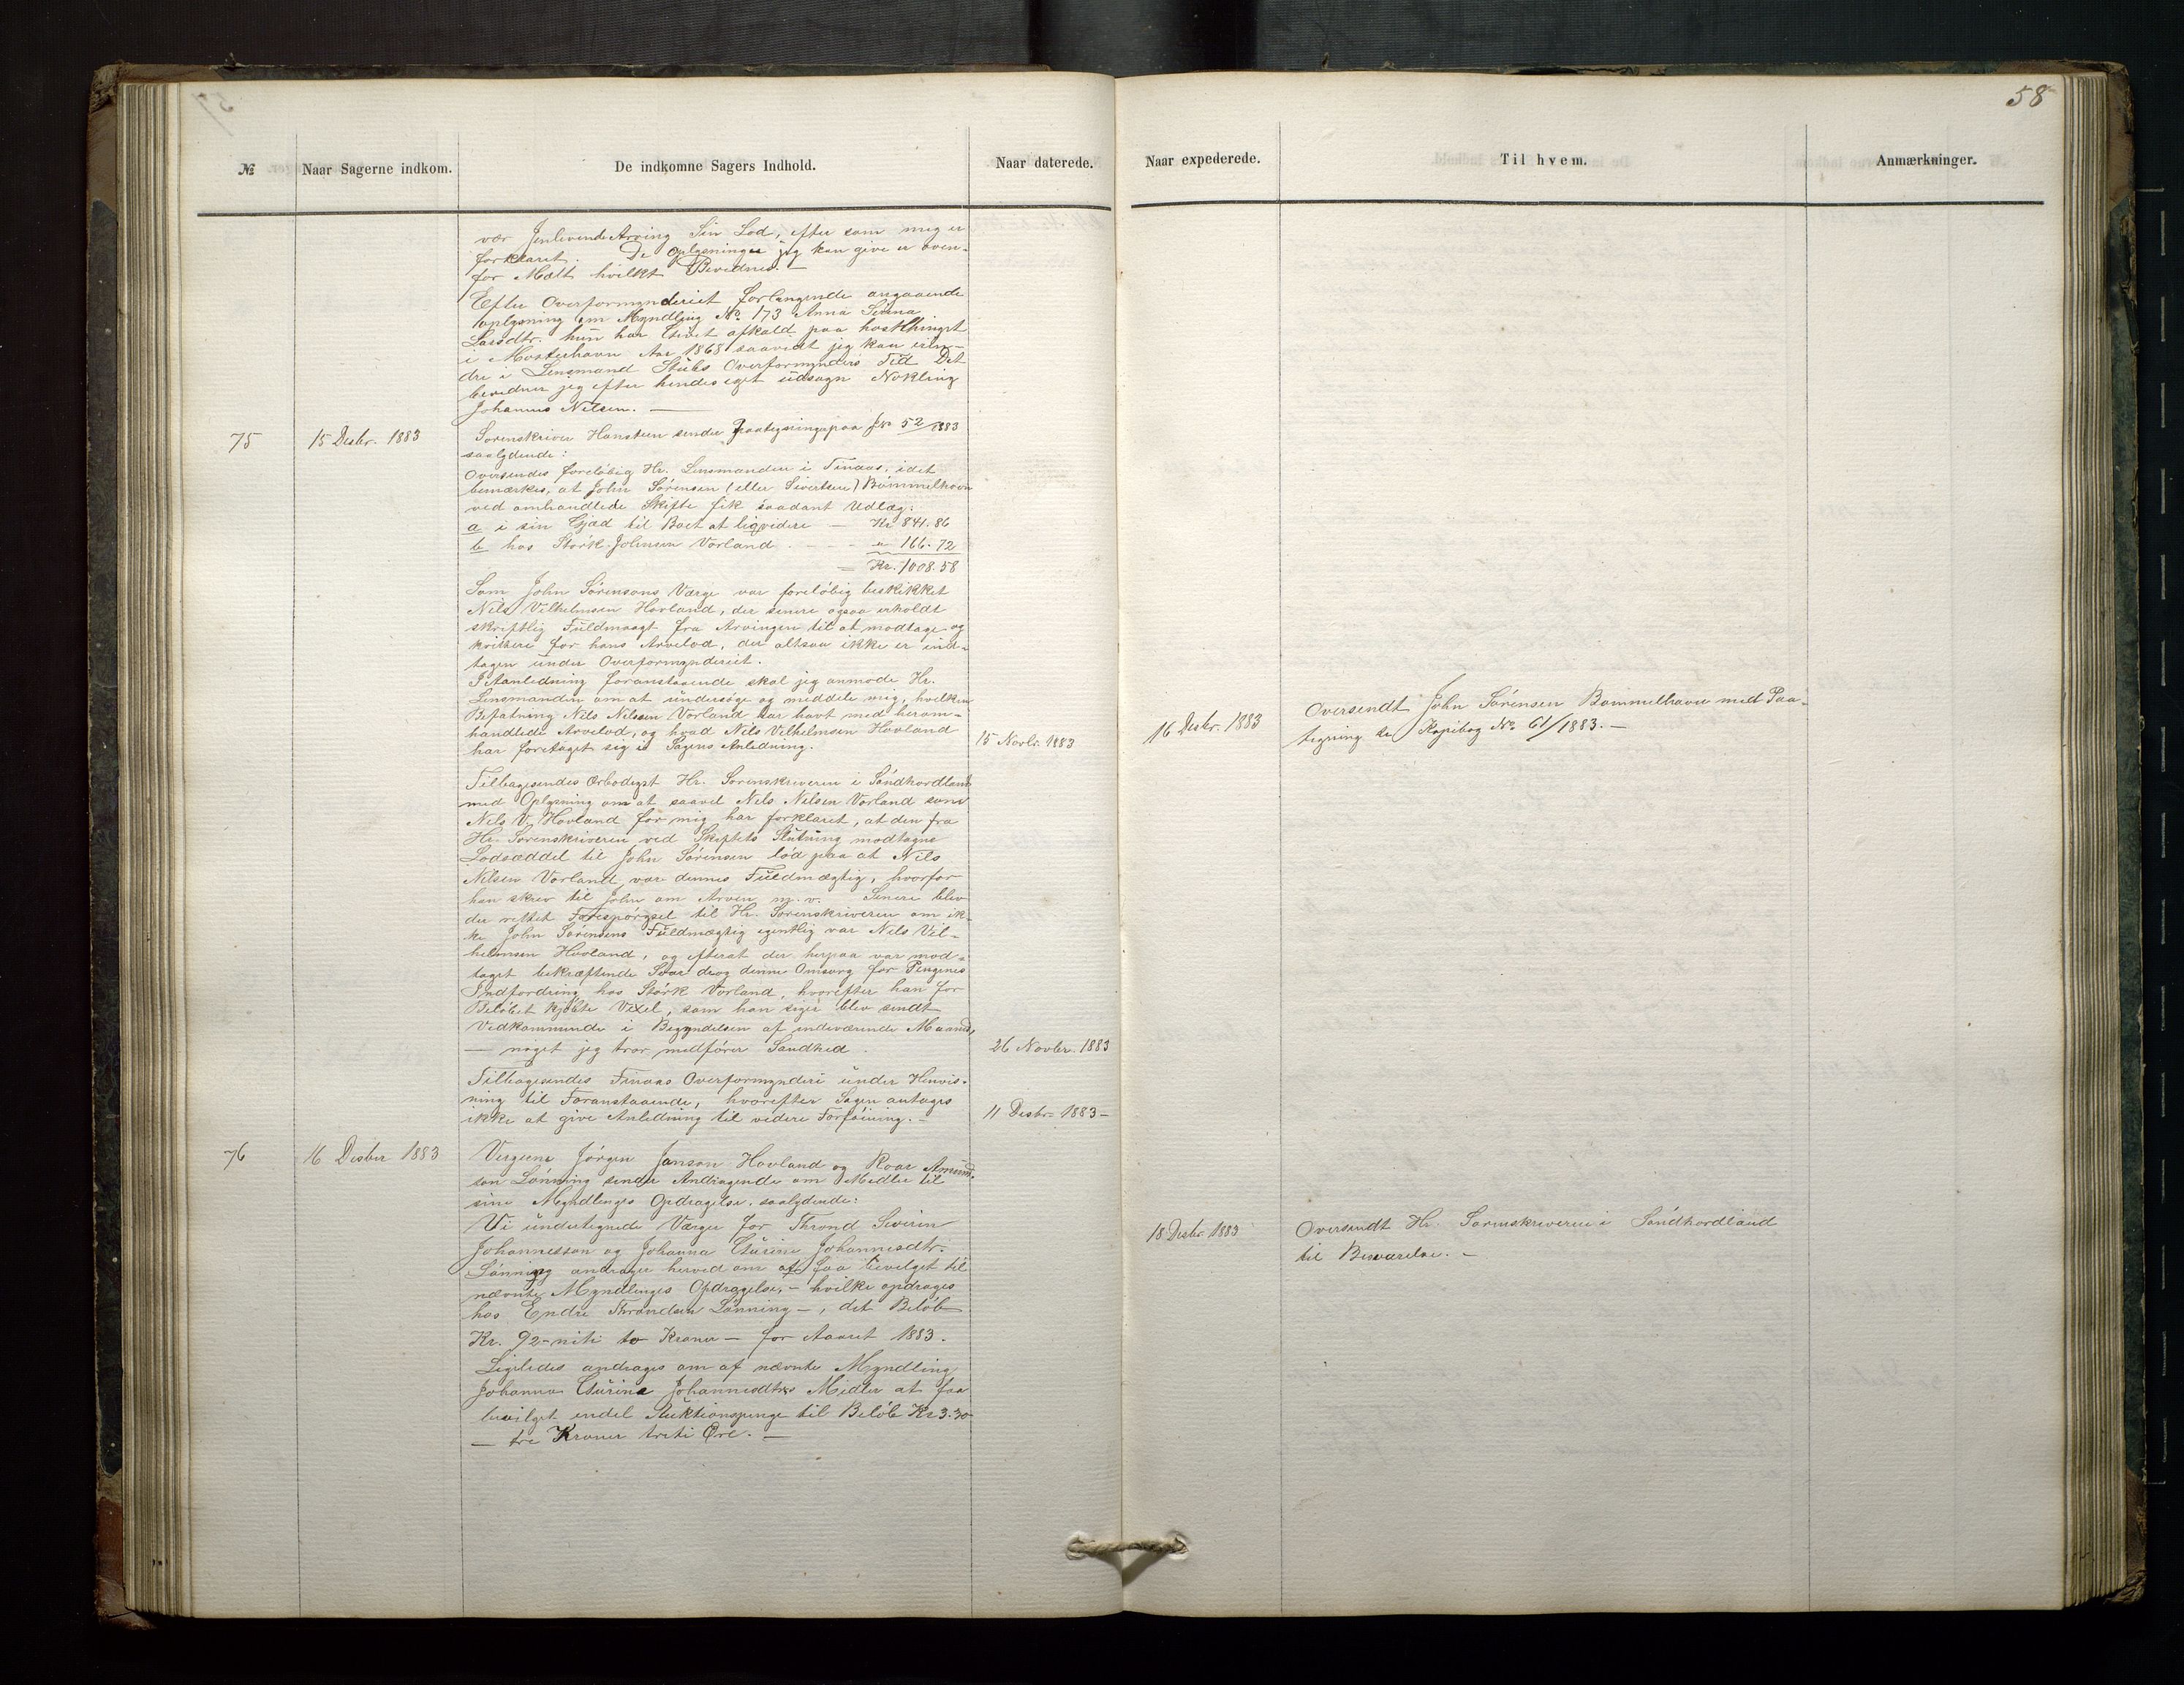 58
№
Naar Sagerne indkom.
De indkomne Sagers Indhold.
Naar daterede.
Naar expederede.
Til hvem.
Anmærkninger.
vær Jenlevende Arving Sin Lod, efter som mig er
forklaret. De Oplysninger jeg kan give er oven-
for Mælt hvilket Bevidnes. —
Efter Overformynderiet forlangende angaaende
oplysning om Myndling No 173 Anna Serina
Larsdtr. hun har Givet afkald paa hostthinget
i Mosterhavn Aar 1868 saavidt jeg kan erin-
dre i Lensmand Stubs Overformynders Tid Det
bevidner jeg efter hendes eget udsagn Nokling
Johannes Nilsen. —
75
15 Desbr. 1883
Sorenskriver Hansteen sender Paategning paa Jno 52/1883
saalydende:
Oversendes foreløbig Hr. Lensmanden i Finaas, idet
bemærkes, at John Sørensen (eller Sivertsen) Bømmelhavn
ved omhandlede Skifte fik saadant Udlæg:
a i sin Gjæd til Boet at liqvidere — Kr 841.86
b hos Størk Johnsen Vorland . - - - " 166.72
= Kr. 1008.58
Som John Sørensens Værge var foreløbig beskikket
Nils Vilhelmsen Hovland, der senere ogsaa erholdt
skriftlig Fuldmagt fra Arvingen til at modtage og
kvittere for hans Arvelod, der altsaa ikke er ind-
tagen under Overformynderiet.
I Anledning foranstaaende skal jeg anmode Hr.
Lensmanden om at undersøge og meddele mig, hvilken
Befatning Nils Nilssen Vorland har havt med herom-
handlede Arvelod, og hvad Nils Vilhelmsen Hovland
har foretaget sig i Sagens Anledning.
15 Novbr. 1883
16 Desbr. 1883
Oversendt John Sørensen Bømmelhavn med Paa-
tegning se Kopibog No 61/1883. —
Tilbagesendes Ærbødigst Hr. Sorenskriveren i Søndhordland
med Oplysning om at saavel Nils Nilsen Vorland som
Nils V. Hovland for mig har forklaret, at den fra
Hr. Sorenskriveren ved Skiftets Slutning modtagne
Lodseddel til John Sørensen lød paa at Nils
Nilsen Vorland var dennes Fuldmægtig, hvorfor
han skrev til John om Arven m. v. Senere blev
der rettet Forespørgsel til Hr. Sorenskriveren om ik-
ke John Sørensens Fuldmægtig egentlig var Nils Vil-
helmsen Hovland, og efterat der herpaa var mod-
taget bekræftende Svar drog denne Omsorg for Pengenes
Indfordring hos Størk Vorland, hvorefter han for
Beløbet kjøbte Vexel, som han siger blev sendt
Vedkommende i Begyndelsen af indeværende Maaned,
— noget jeg tror medfører Sandhed.
26 Novbr. 1883
Tilbagesendes Finaas Overformynderi under Henvis-
ning til Foranstaaende, hvorefter Sagen antages
ikke at give Anledning til videre Forføining. —
11 Desbr. 1883 —
76
16 Desber 1883
Vergerne Jørgen Janson Hovland og Roar Amund-
son Lønning sender Andragende om Midler til
sine Myndlinges Opdragelse, saalydende:
Vi undertegnede Værger for Thrond Severin
Johannesson og Johanna Gurine Johannesdtr.
Lønning andrager herved om at faa bevilget til
nævnte Myndlinges Opdragelse, – hvilke opdrages
hos Endre Throndsen Lønning –, det Beløb
Kr. 92 – niti to Kroner — for Aaret 1883.
Ligeledes andrages om af nævnte Myndling
Johanna Gurina Johannesdtrs Midler at faa
bevilget endel Auktionspenge til Beløb Kr 3.30
— tre Kroner treti Øre. —
18 Desbr 1883
Oversendt Hr. Sorenskriveren i Søndhordland
til Besvarelse. —